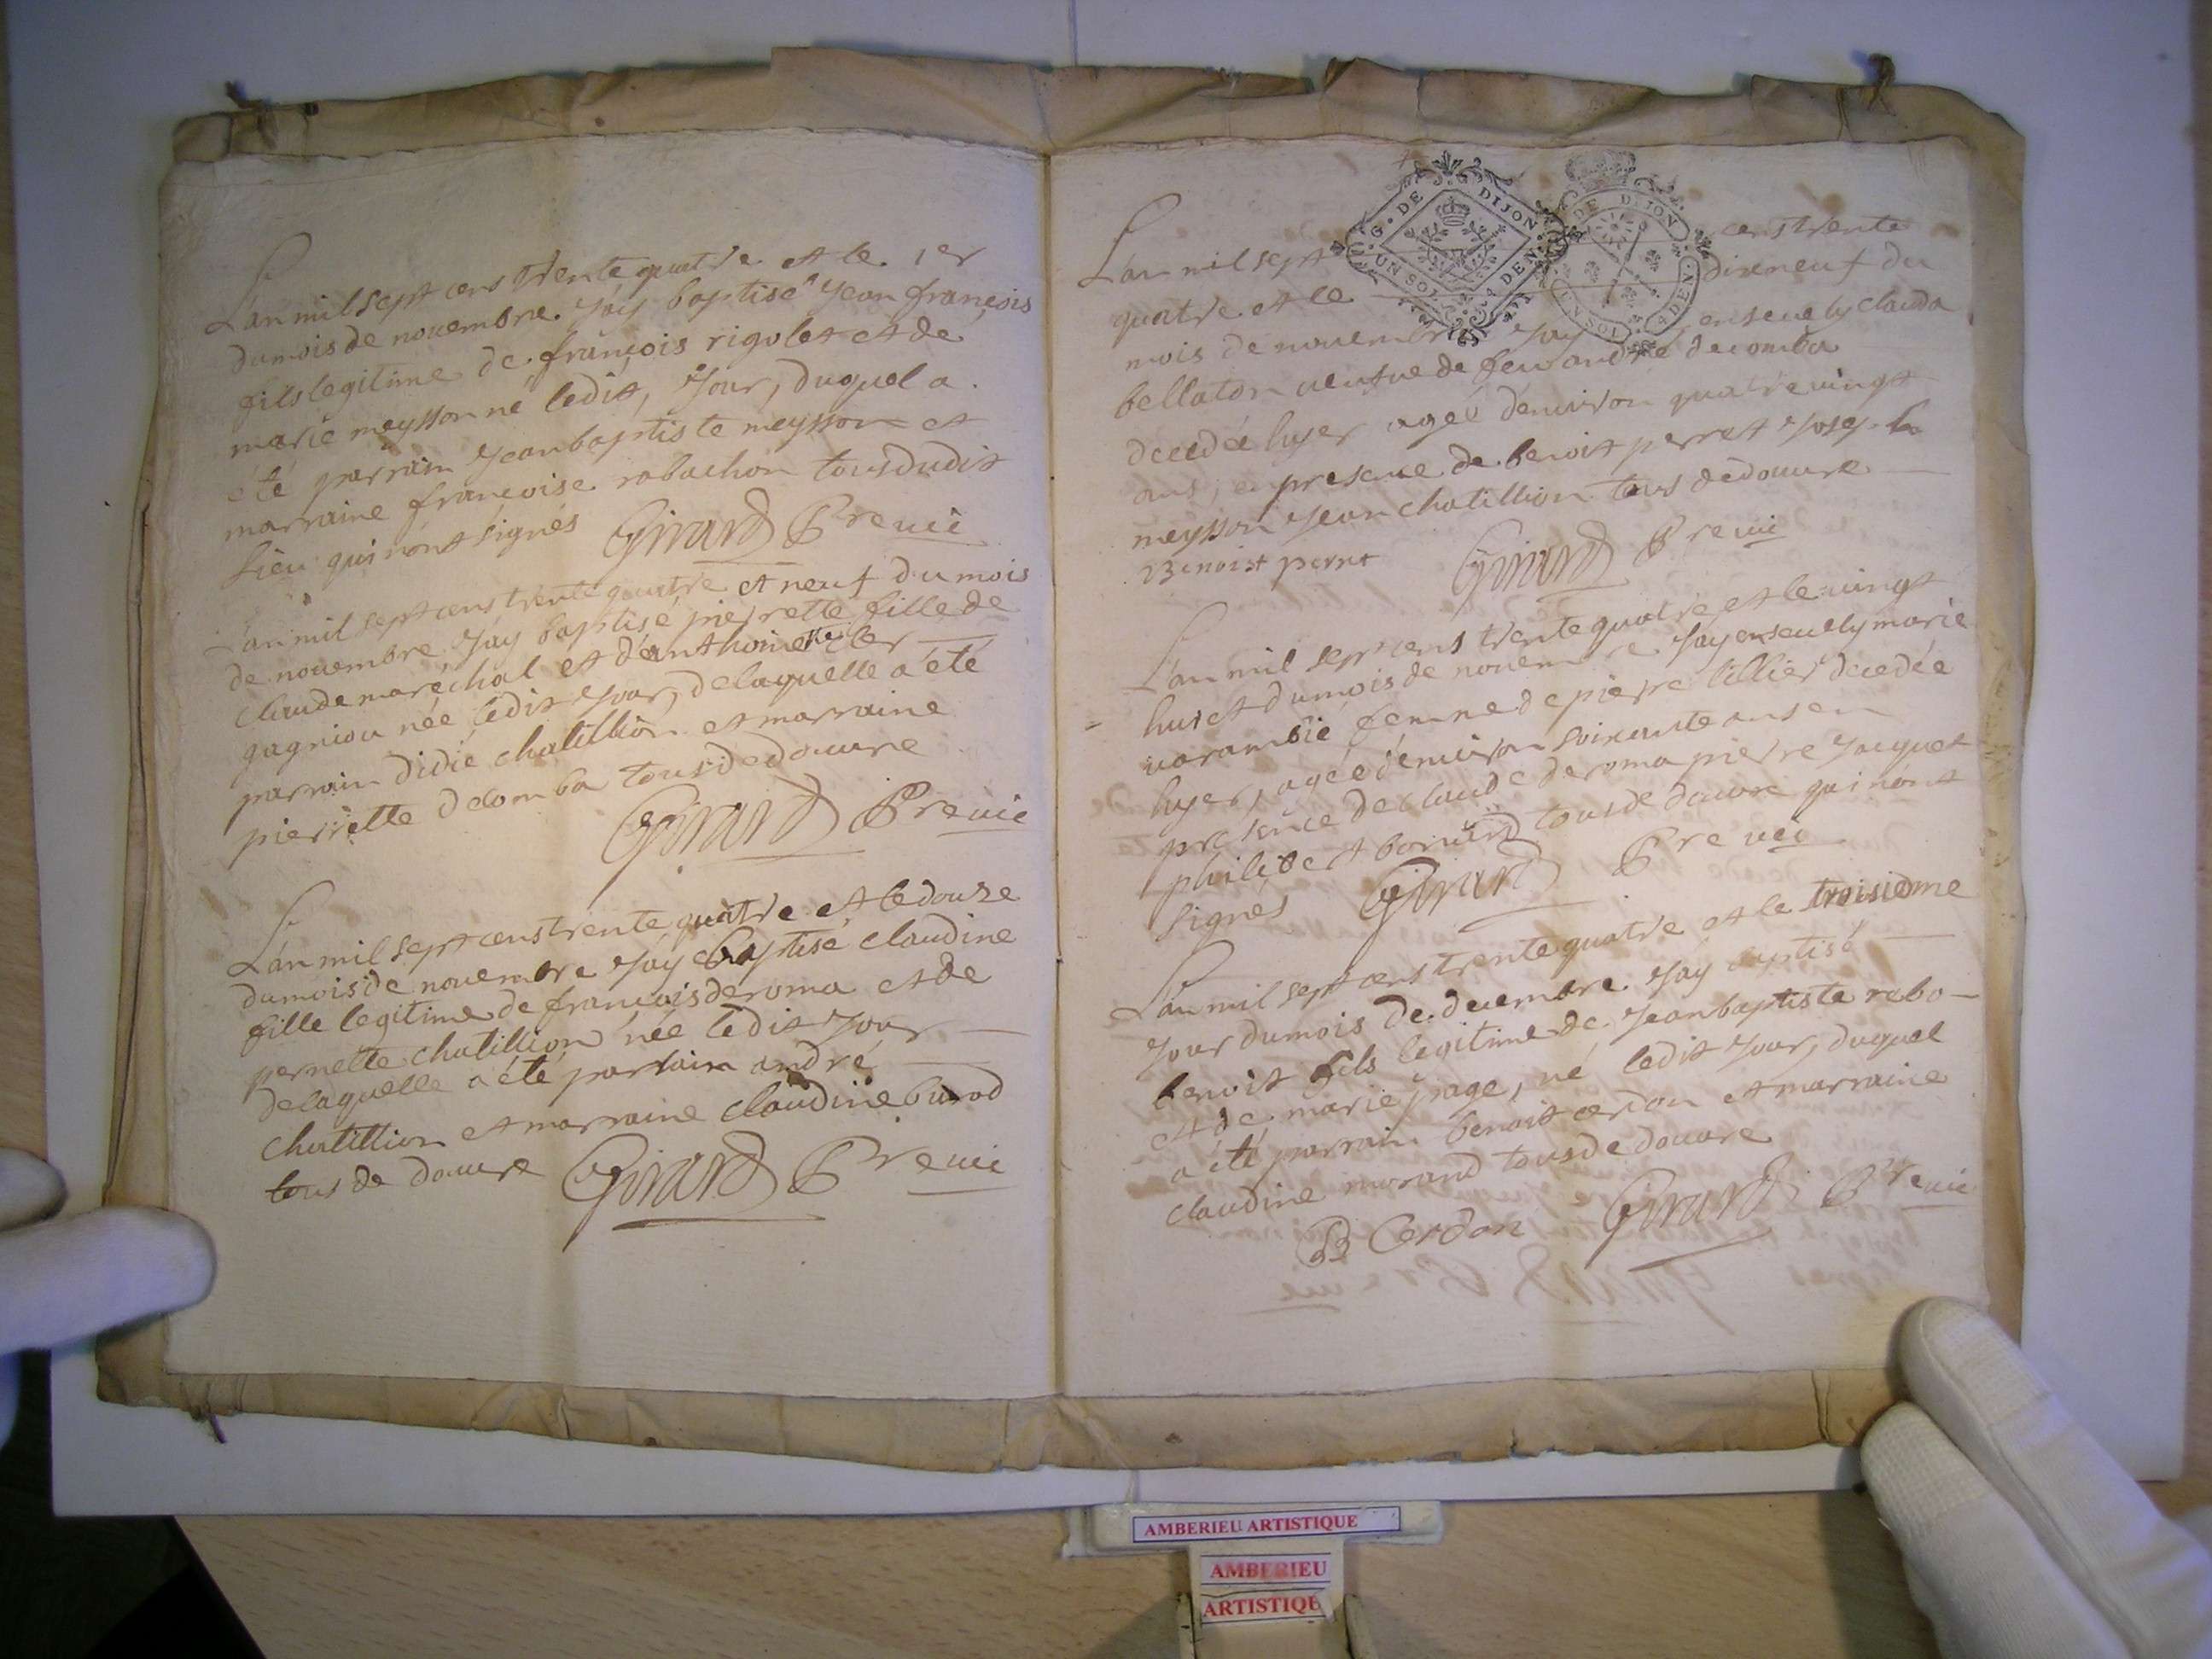 L'an mil sept cens trente quatre et le 1er
du mois de novembre j'ay baptisé jean françois
fils legitime de françois rigolet et de
marie meysson né ledit jour, duquel a
été parrain jean baptiste meysson et
marraine françoise rabachon tous dudit
lieu qui n'ont signés Girard Ptre vic
L'an mil sept cens trente quatre et neuf du mois
de novembre j'ay baptisé pierrette fille de
claude maréchal et d'anthoinette
gagniou née ledit jour, delaquelle a été
parrain didié chatillion et marraine
pierrette decomba tous de douvre
Girard Ptre vic
L'an mil sept cens trente quatre et le douze
du mois de novembre j'ay baptisé claudine
fille legitime de francois deroma et de
pernette chatillion née ledit jour
delaquelle a été parrain andré
chatillion et marraine claudine burod
tous de douvre Girard Ptre vic
G. DE DIJON
UN SOL 4 DEN.
DE DIJON
UN SOL 4 DEN.
L'an mil sept cens trente
quatre et le dixneuf du
mois de novembre j'ay enseuely clauda
bellaton veufve de feu andré decomba
decedée hyer agée d'environ quatrevingt
ans, en presence de benoit perret joseph
meysson jean chatillion tous de douvre
Benoist peret Girard Ptre vic
L'an mil sept cens trente quatre et le vingt
huict du mois de novembre j'ay enseuely marie
varambié femme de pierre lillier decedée
hyer, agée d'environ soixante ans en
presence de claude deroma pierre jacquet
philibert tous de douvre qui n'ont
signés Girard Ptre vic
L'an mil sept cens trente quatre et le troisieme
jour du mois de decembre j'ay baptisé
benoit fils legitime de jean baptiste rabo-
et de marie page, né ledit jour, duquel
a été parrain benoit cerdon et marraine
claudine morand tous de douvre
B Cerdon Girard Ptre vic
AMBERIEU ARTISTIQUE
AMBERIEU
ARTISTIQUE